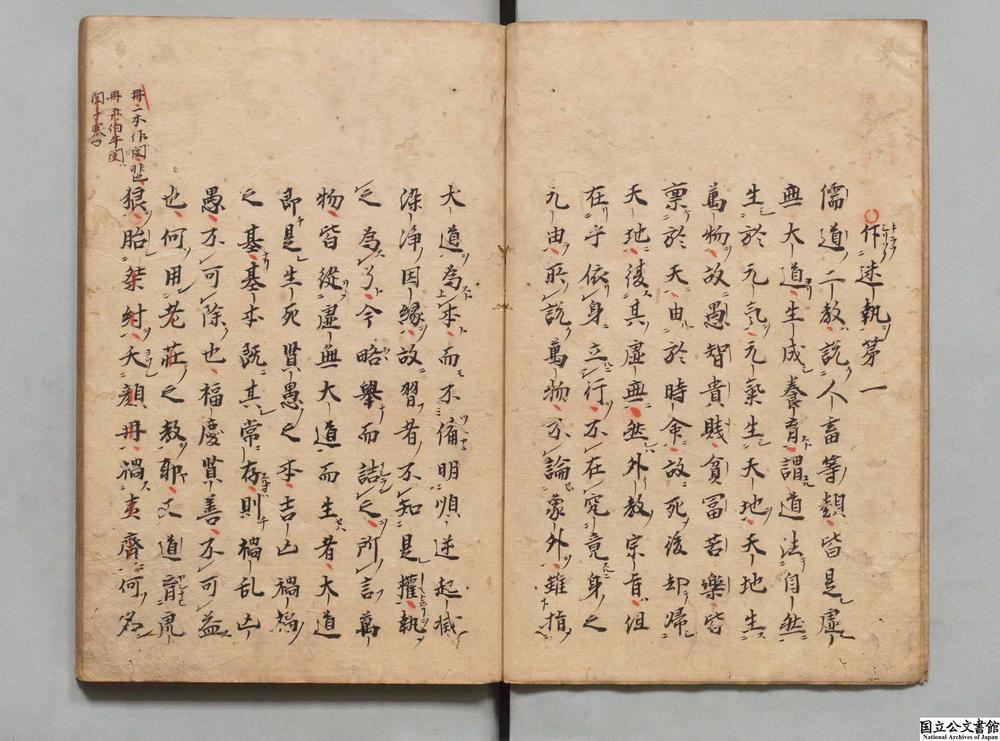 斥迷執第一
儒道二教説人畜等類皆是虚
無大道生成養育謂道法自然
生於元気元氣生天地天地生
萬物故愚智貴賤貧冨苦樂皆
禀於天由於時命故死後却歸
天地復其虚無然外教宗旨但
在乎依身立行不在究竟身之
元由所説萬物不論象外雖指
大道為本而不備明順逆起滅
染浄因縁故習者不知是權執
之為了今略舉而詰之所言萬
物皆從虚無大道而生者大道
即是生死賢愚之本吉凶禍福
之基基本既其常存則禍乱凶
愚不可除也福慶賢善不可益
也何用老莊之教耶又道育虎
狼胎桀紂夭顔冉禍夷齊何名
冉二本作閔
冉冉伯牛閔
閔子騫
国立公文書館
National Archives of Japan